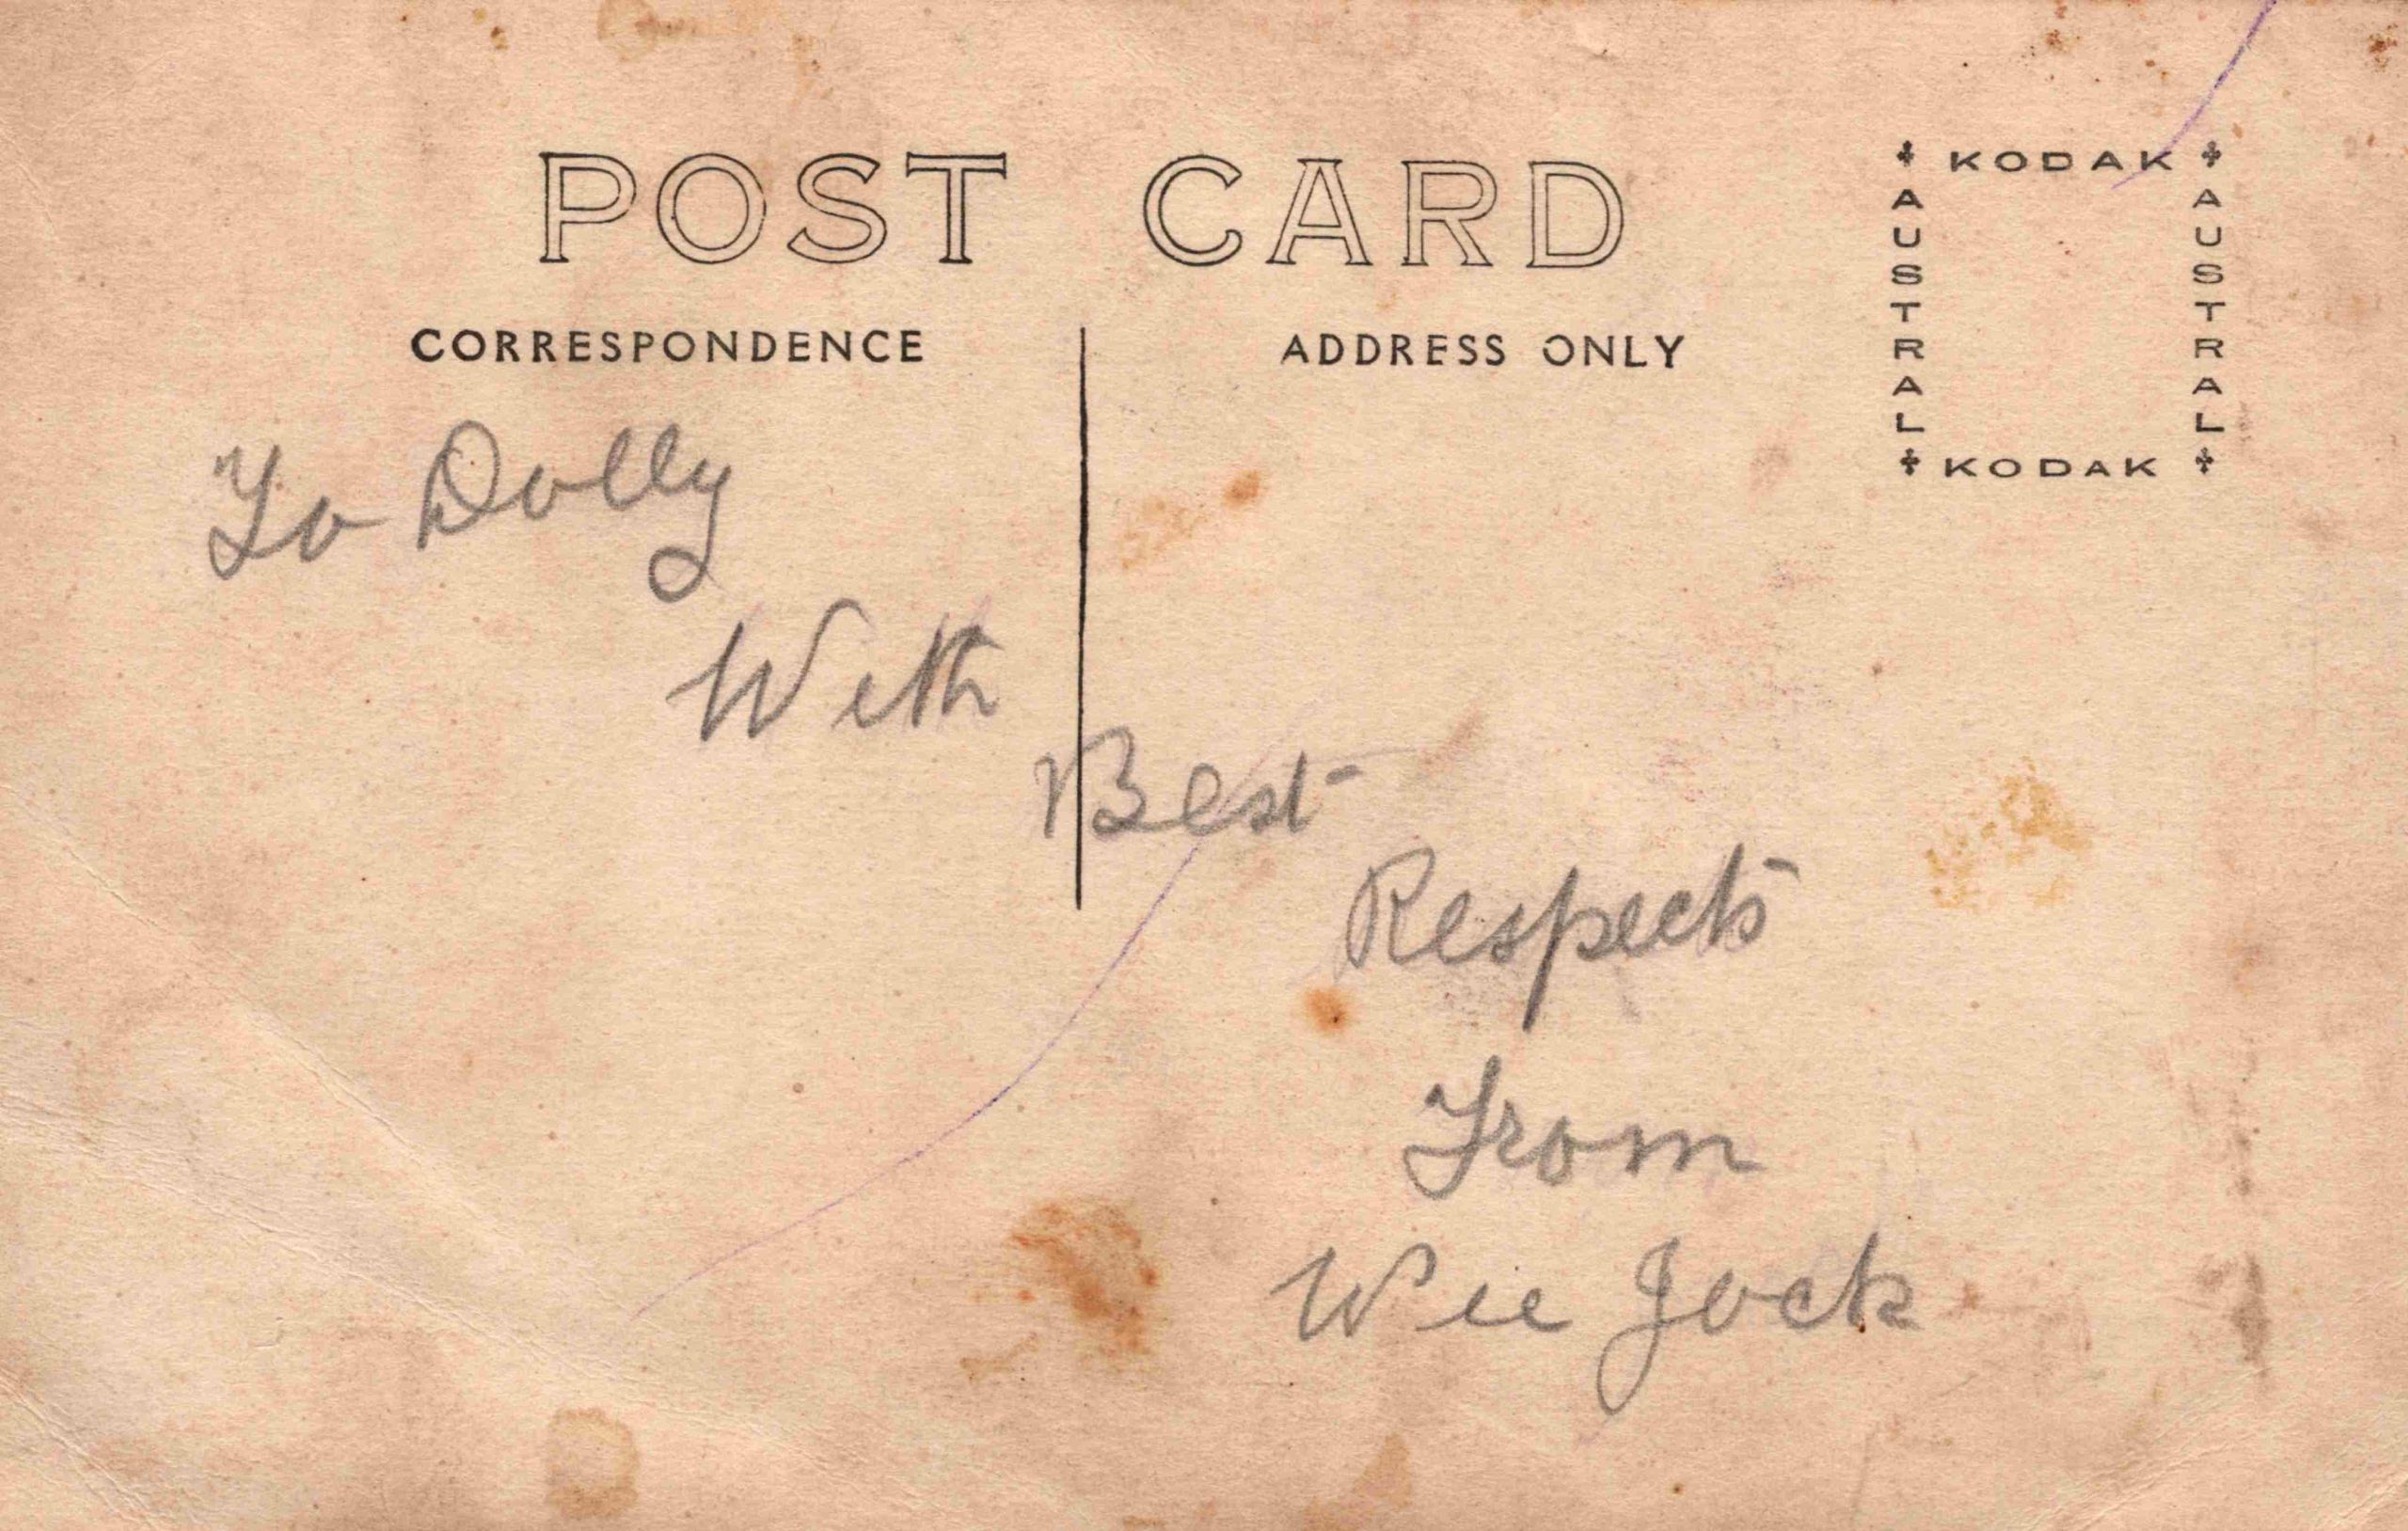 POST CARD
CORRESPONDENCE
ADDRESS ONLY
KODAK
AUSTRAL
AUSTRAL
KODAK
To Dolly
With
Best
Respects
From
Wee Jock